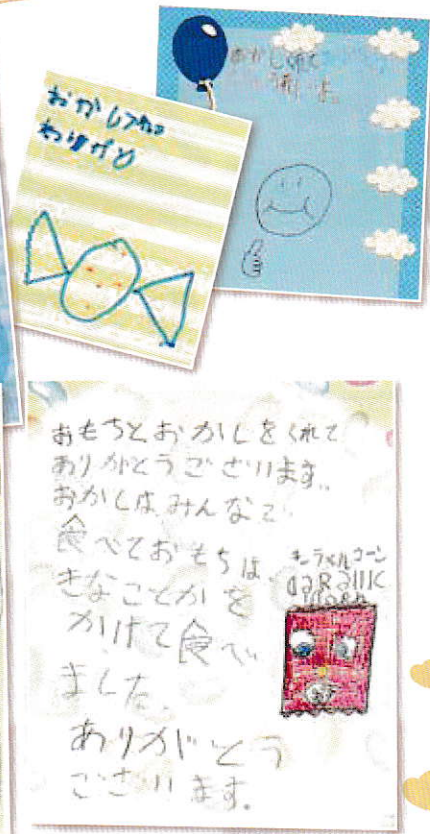 おかし
ありがと
おかし
おもちとおかしをくれて
ありがとうございます。
おかしはみんなで
食べておもちは、
きなことかを
かけて食べ
ました。
ありがとう
ございます。
キャラメルコーン